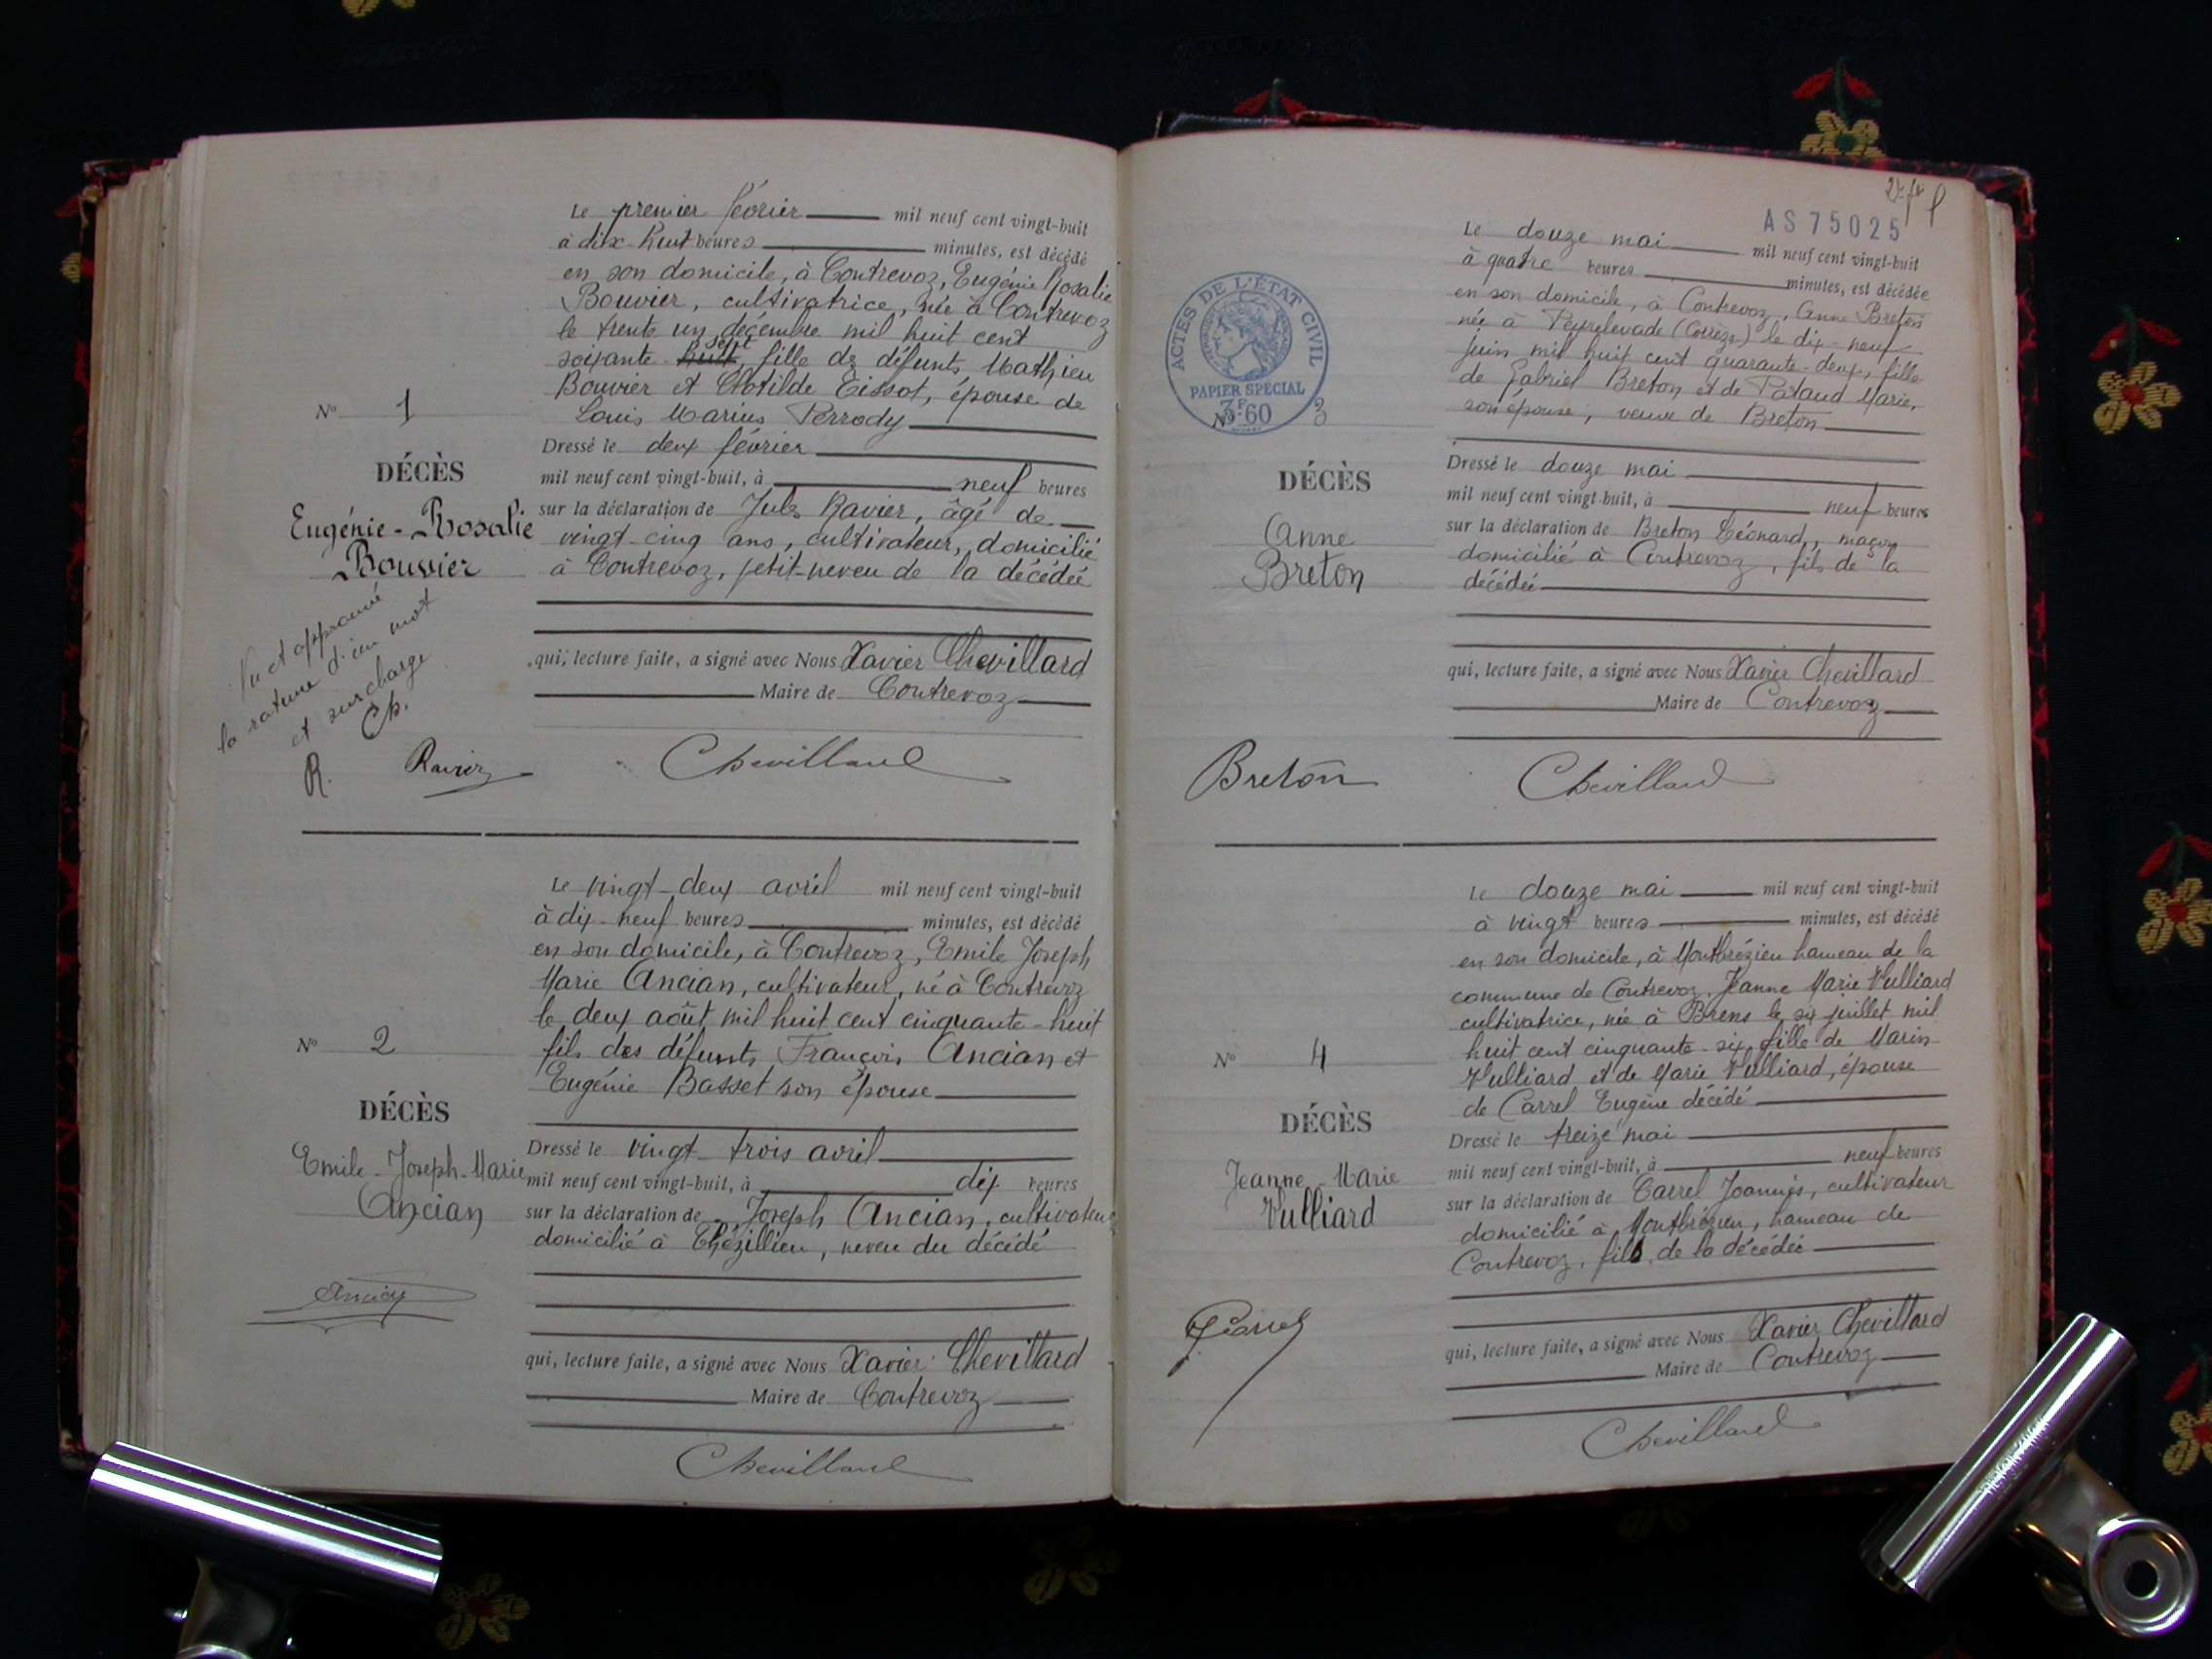 Le premier février mil neuf cent vingt-huit
à dix-huit heures minutes, est décédé
en son domicile, à Contrevoz, Eugénie Rosalie
Bouvier, cultivatrice, née à Contrevoz
le trente un décembre mil huit cent
sept
soixante huit, fille des défunts Mathieu
Bouvier et Clotilde Tissot, épouse de
Louis Marius Perrody
Nº 1
DÉCÈS
Eugénie-Rosalie
Bouvier
Dressé le deux février
mil neuf cent vingt-huit, à neuf heures
sur la déclaration de Jules Ravier, âgé de
vingt-cinq ans, cultivateur, domicilié
à Contrevoz, petit-neveu de la décédée
qui, lecture faite, a signé avec Nous Xavier Chevillard
Maire de Contrevoz
Vu et approuvé
la rature d'un mot
et surcharge
Ch.
R.
Ravier
Chevillard
Le vingt-deux avril mil neuf cent vingt-huit
à dix-neuf heures minutes, est décédé
en son domicile, à Contrevoz, Emile Joseph
Marie Ancian, cultivateur, né à Contrevoz
le deux août mil huit cent cinquante-huit
fils des défunts François Ancian et
Eugénie Basset son épouse
Nº 2
DÉCÈS
Emile-Joseph-Marie
Ancian
Dressé le vingt-trois avril
mil neuf cent vingt-huit, à dix heures
sur la déclaration de Joseph Ancian, cultivateur
domicilié à Thézillieu, neveu du décédé
qui, lecture faite, a signé avec Nous Xavier Chevillard
Maire de Contrevoz
Ancian
Chevillard
AS 75025
ACTES DE L'ÉTAT CIVIL
PAPIER SPÉCIAL
3F60
Le douze mai mil neuf cent vingt-huit
à quatre heures minutes, est décédée
en son domicile, à Contrevoz, Anne Breton
née à Peyrelevade (Corrèze) le dix-neuf
juin mil huit cent quarante-deux, fille
de Gabriel Breton et de Pataud Marie,
son épouse, veuve de Breton
Nº 3
DÉCÈS
Anne
Breton
Dressé le douze mai
mil neuf cent vingt-huit, à neuf heures
sur la déclaration de Breton Léonard, maçon
domicilié à Contrevoz, fils de la
décédée
qui, lecture faite, a signé avec Nous Xavier Chevillard
Maire de Contrevoz
Breton
Chevillard
Le douze mai mil neuf cent vingt-huit
à vingt heures minutes, est décédé
en son domicile, à Montbrézieu hameau de la
commune de Contrevoz, Jeanne Marie Vulliard
cultivatrice, née à Brens le six juillet mil
huit cent cinquante-six, fille de Marin
Vulliard et de Marie Vulliard, épouse
de Carrel Eugène décédé
Nº 4
DÉCÈS
Jeanne-Marie
Vulliard
Dressé le treize mai
mil neuf cent vingt-huit, à neuf heures
sur la déclaration de Carrel Joannès, cultivateur
domicilié à Montbrézieu, hameau de
Contrevoz, fils de la décédée
qui, lecture faite, a signé avec Nous Xavier Chevillard
Maire de Contrevoz
Chevillard